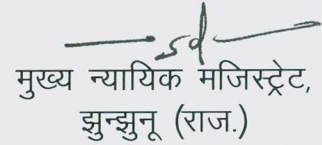 sd
मुख्य न्यायिक मजिस्ट्रेट,
झुन्झुनू (राज.)